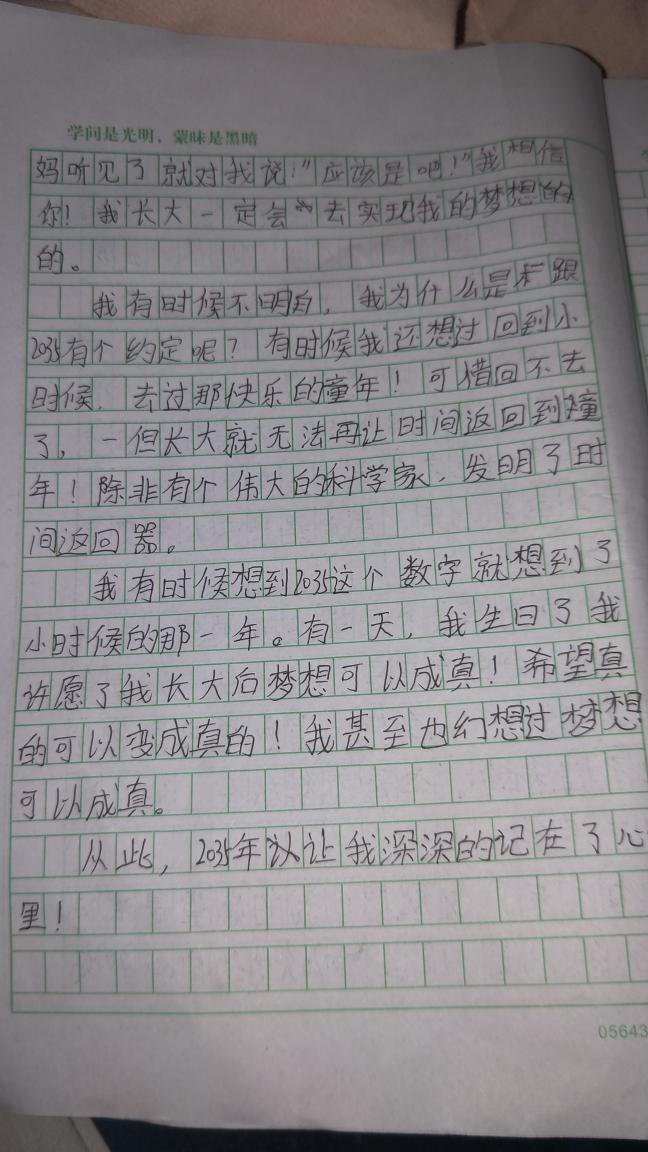 学问是光明，蒙昧是黑暗
妈听见了就对我说：“应该是吧！”我相信
你！我长大一定会去实现我的梦想的
的。
我有时候不明白，我为什么是跟
2035有个约定呢？有时候我还想过回到小
时候，去过那快乐的童年！可惜回不去
了，一但长大就无法再让时间返回到童
年！除非有个伟大的科学家，发明了时
间返回器。
我有时候想到2035这个数字就想到了
小时候的那一年。有一天，我生日了我
许愿了我长大后梦想可以成真！希望真
的可以变成真的！我甚至也幻想过梦想
可以成真。
从此，2035年让我深深的记在了心
里！
05643